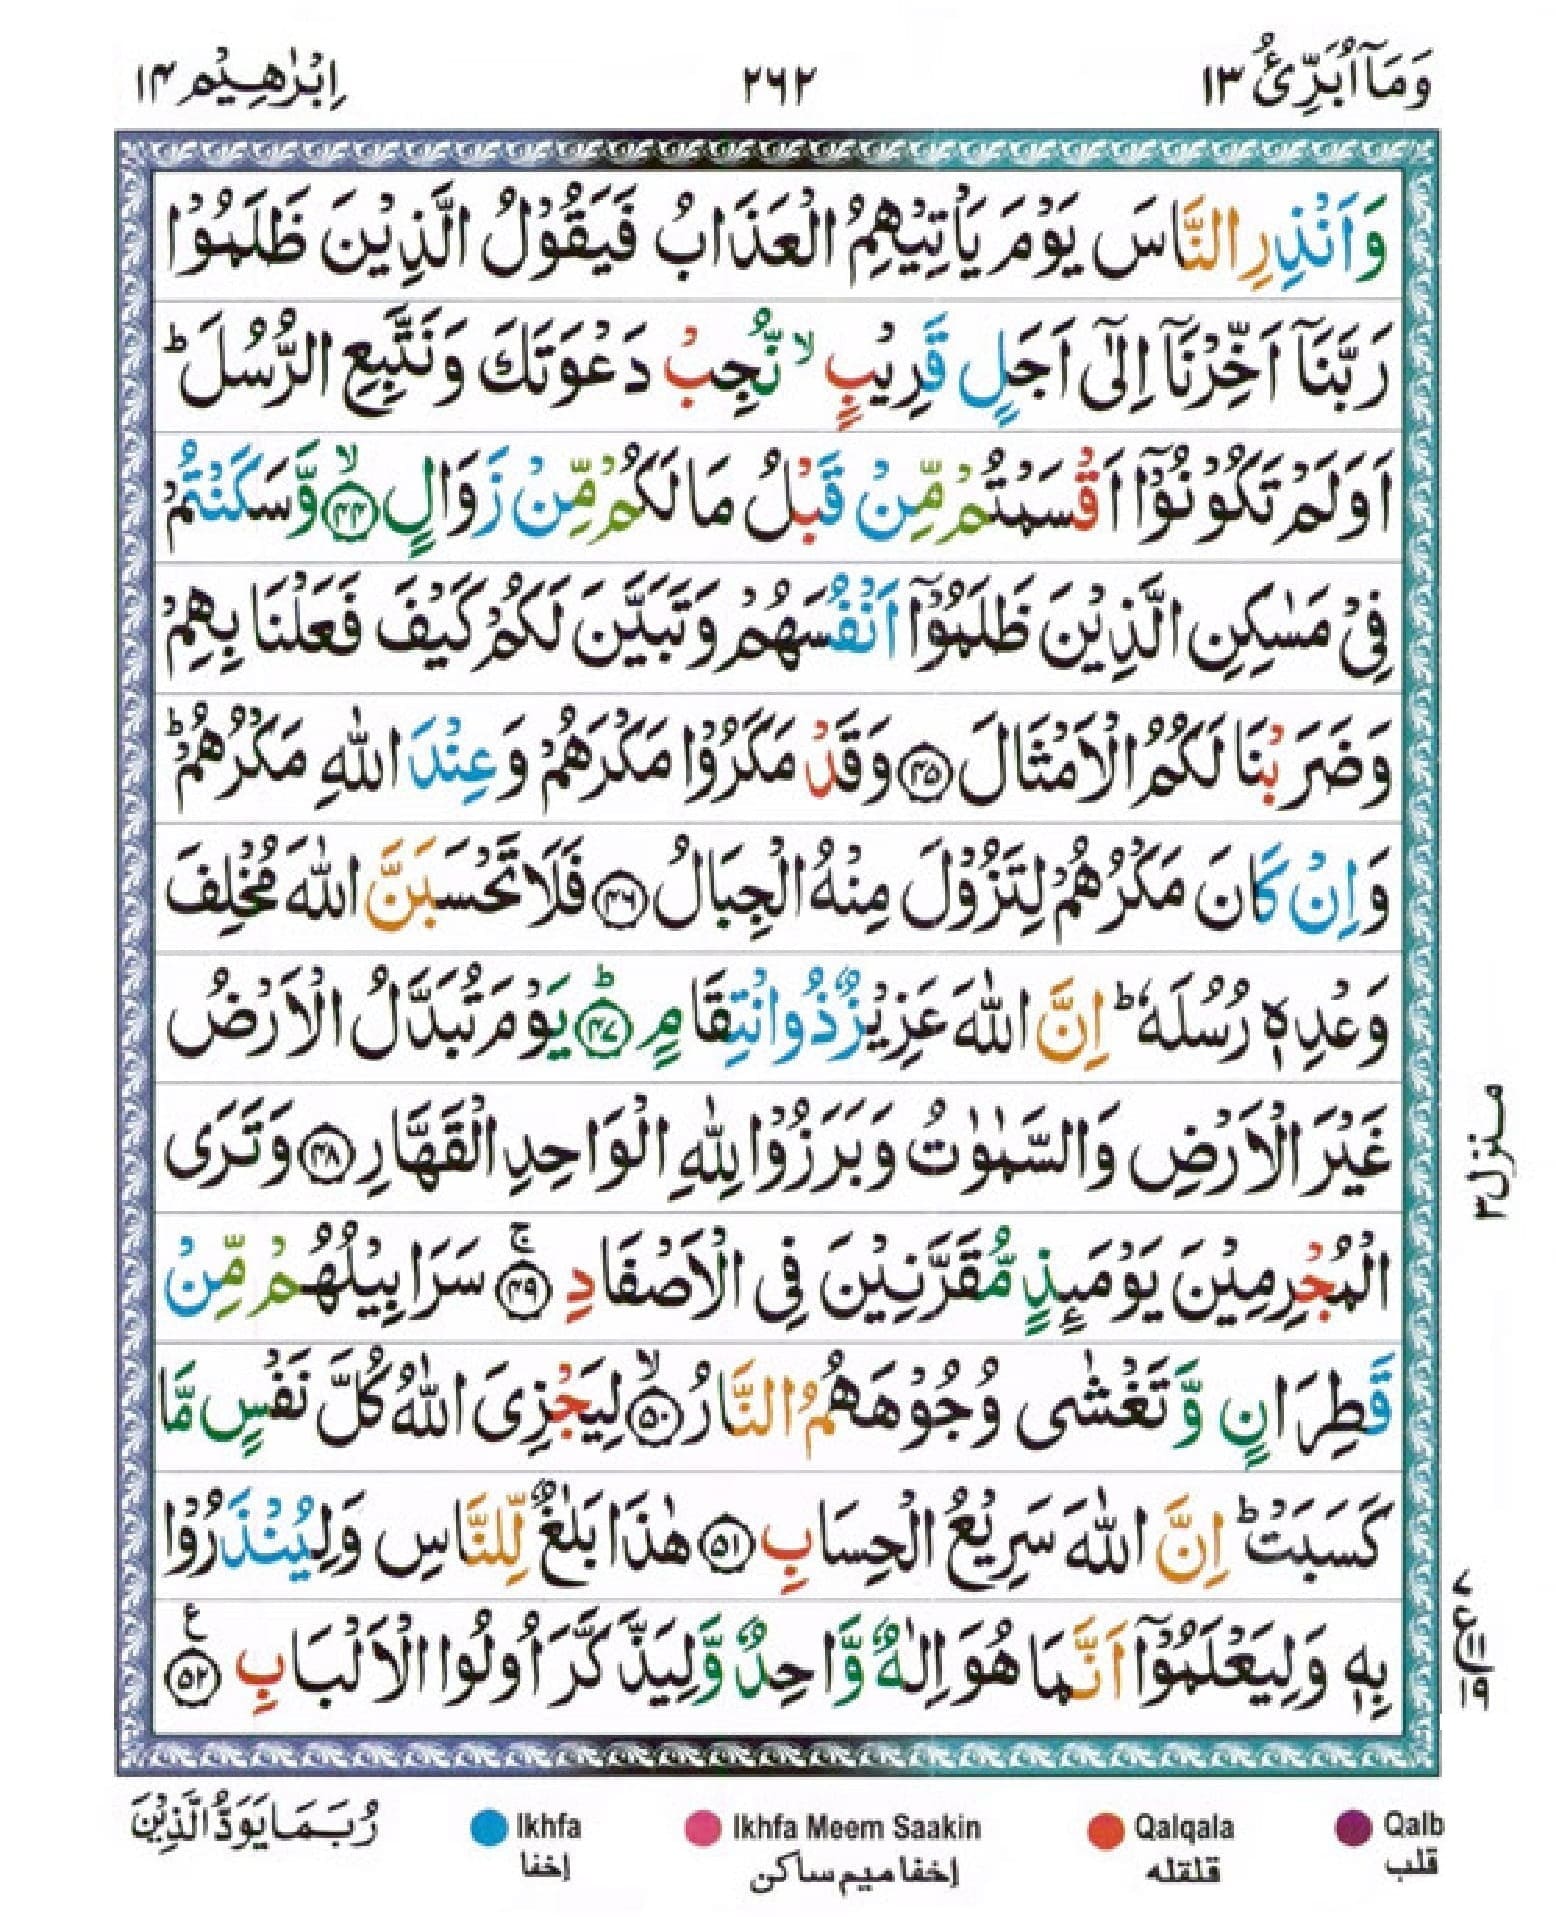 وَمَاۤ اُبَرِّئُ ١٣ ٢٦٢ اِبْرٰهِيْم ١٤
وَاَنْذِرِ النَّاسَ يَوْمَ يَاْتِيْهِمُ الْعَذَابُ فَيَقُوْلُ الَّذِيْنَ ظَلَمُوْا
رَبَّنَاۤ اَخِّرْنَاۤ اِلٰۤى اَجَلٍ قَرِيْبٍ ۙ نُّجِبْ دَعْوَتَكَ وَنَتَّبِعِ الرُّسُلَ ؕ
اَوَلَمْ تَكُوْنُوْۤا اَقْسَمْتُمْ مِّنْ قَبْلُ مَا لَكُمْ مِّنْ زَوَالٍ ۙ﴿۴۴﴾ وَّسَكَنْتُمْ
فِيْ مَسٰكِنِ الَّذِيْنَ ظَلَمُوْۤا اَنْفُسَهُمْ وَتَبَيَّنَ لَكُمْ كَيْفَ فَعَلْنَا بِهِمْ
وَضَرَبْنَا لَكُمُ الْاَمْثَالَ ﴿۴۵﴾ وَقَدْ مَكَرُوْا مَكْرَهُمْ وَعِنْدَ اللّٰهِ مَكْرُهُمْ ؕ
وَاِنْ كَانَ مَكْرُهُمْ لِتَزُوْلَ مِنْهُ الْجِبَالُ ﴿۴۶﴾ فَلَا تَحْسَبَنَّ اللّٰهَ مُخْلِفَ
وَعْدِهٖ رُسُلَهٗ ؕ اِنَّ اللّٰهَ عَزِيْزٌ ذُو انْتِقَامٍ ؕ﴿۴۷﴾ يَوْمَ تُبَدَّلُ الْاَرْضُ
غَيْرَ الْاَرْضِ وَالسَّمٰوٰتُ وَبَرَزُوْا لِلّٰهِ الْوَاحِدِ الْقَهَّارِ ﴿۴۸﴾ وَتَرَى
الْمُجْرِمِيْنَ يَوْمَئِذٍ مُّقَرَّنِيْنَ فِى الْاَصْفَادِ ۚ﴿۴۹﴾ سَرَابِيْلُهُمْ مِّنْ
قَطِرَانٍ وَّتَغْشٰى وُجُوْهَهُمُ النَّارُ ۙ﴿۵۰﴾ لِيَجْزِىَ اللّٰهُ كُلَّ نَفْسٍ مَّا
كَسَبَتْ ؕ اِنَّ اللّٰهَ سَرِيْعُ الْحِسَابِ ﴿۵۱﴾ هٰذَا بَلٰغٌ لِّلنَّاسِ وَلِيُنْذَرُوْا
بِهٖ وَلِيَعْلَمُوْۤا اَنَّمَا هُوَ اِلٰهٌ وَّاحِدٌ وَّلِيَذَّكَّرَ اُولُوا الْاَلْبَابِ ﴿۵۲﴾ ع
منزل ٣
٧
ع ١١
١٩
رُبَمَا يَوَدُّ الَّذِيْنَ
Ikhfa Ikhfa Meem Saakin Qalqala Qalb
إخفا إخفا ميم ساكن قلقله قلب